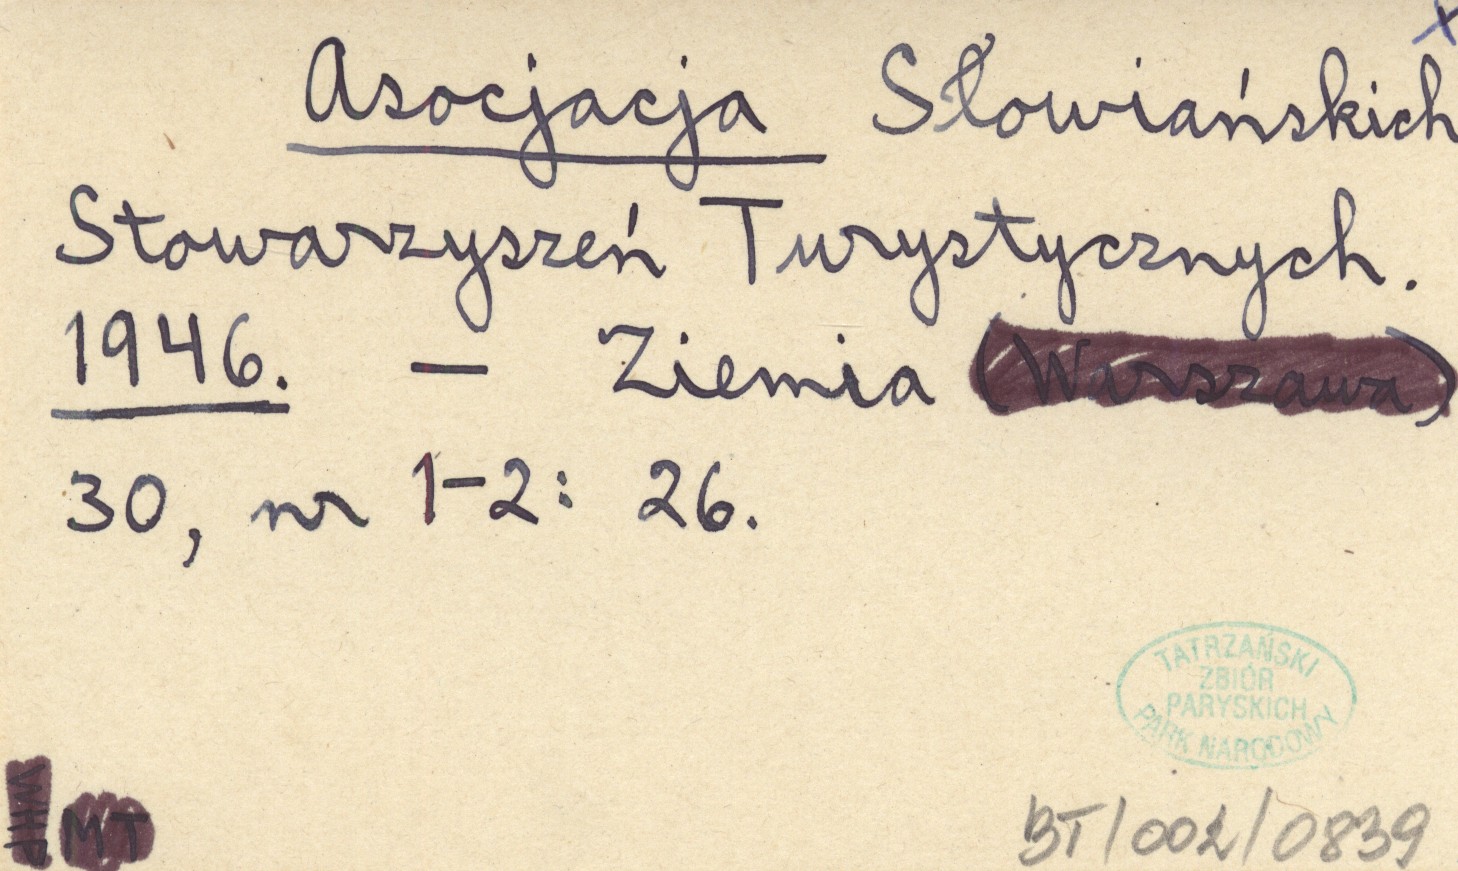 x
Asocjacja Słowiańskich
Stowarzyszeń Turystycznych.
1946. — Ziemia (Warszawa)
30, nr 1-2: 26.
TATRZAŃSKI
ZBIÓR
PARYSKICH
PARK NARODOWY
WHP
MT
BT/002/0839